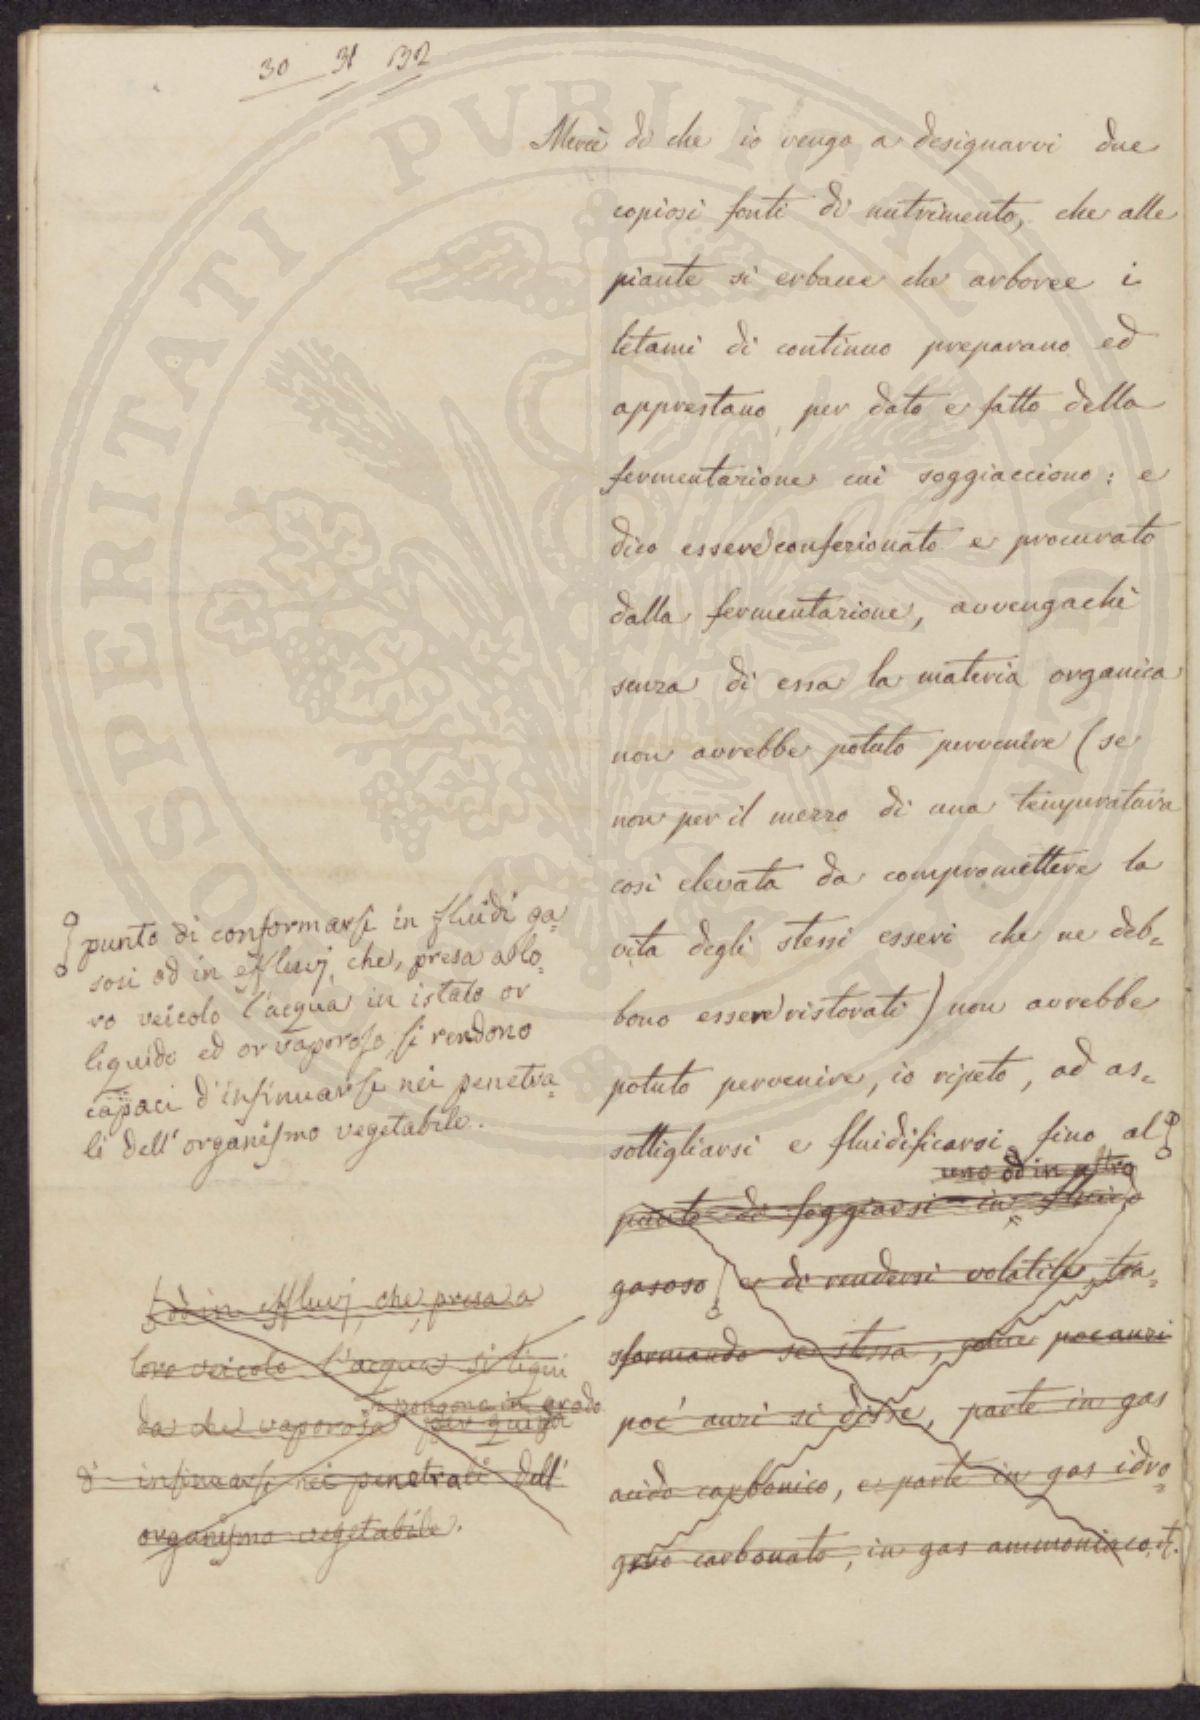 30 31 32
Mercè di che io vengo a designarvi due
copiosi fonti di nutrimento, che alle
piante si erbacee che arboree i
letami di continuo preparano ed
apprestano, per dato e fatto della
fermentazione cui soggiacciono: e
dico essere confezionato e procurato
dalla fermentazione, avvengachè
senza di essa la materia organica
non avrebbe potuto pervenire (se
non per il mezzo di una temperatura
così elevata da compromettere la
vita degli stessi esseri che ne deb=
bono essere ristorati) non avrebbe
potuto pervenire, io ripeto, ad as=
sottigliarsi e fluidificarsi fino al
uno od in altro
punto di foggiarsi in fluido
gasoso e di rendersi volatile, tra=
sformando se stessa, come pocanzi
poc' anzi si disse, parte in gas
acido carbonico, e parte in gas idro=
geno carbonato, in gas ammoniaco,
punto di conformarsi in fluidi ga=
sosi od in effluvj, che, presa a lo=
ro veicolo l'acqua in istato or
liquido ed or vaporoso, si rendono
capaci d'insinuarsi nei penetra=
li dell'organismo vegetabile.
od in effluvj, che, presa a
loro veicolo l'acqua si liqui
pongono in grado
da che vaporosa
d' insinuarsi nei penetrali dell'
organismo vegetabile.
PROSPERITATI PVBLICAE AVGENDAE